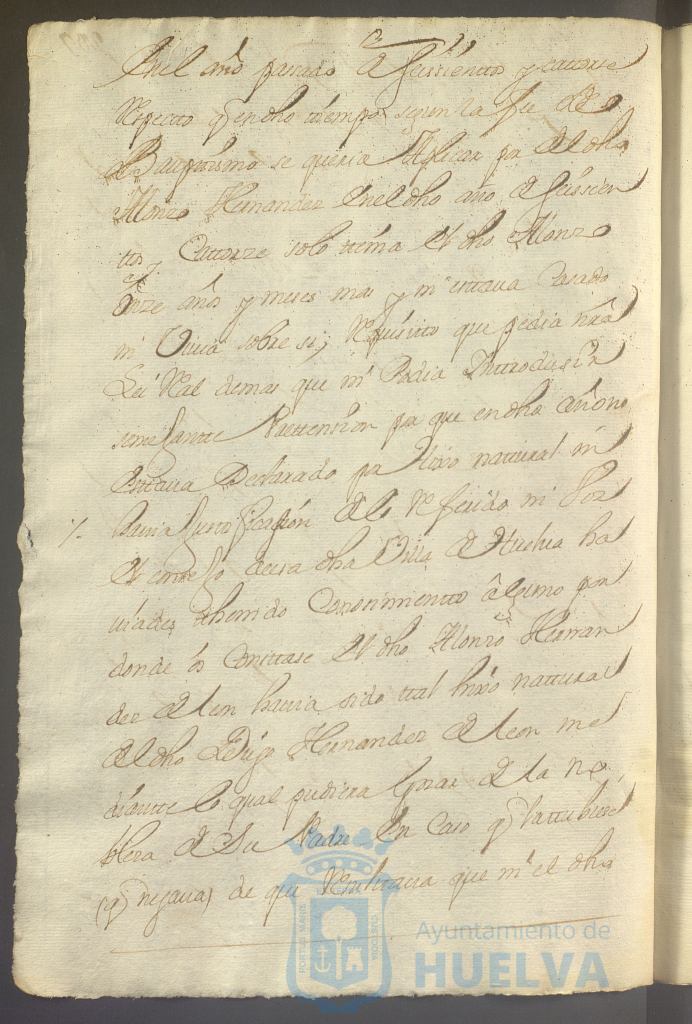 En el año pasado de seissientos y cattorse
Respecto q̃ en dho tiempo segun la fee de
Bauptismo se queria Aplicar pa el dho
Alonzo Hernandez En el dho año de seissien
tos y Cattorze solo tenia el dho Alonzo
Onze años y meses mas y ni estaua Casado
ni Viuia sobre si, Requisitto que pedia nrâ
Lei Real demas que ni Podia Introdusir
semejante Prettension pa que en dho año no
Estaua Declarado pa hixo nattural ni
hauia Justificasion de lo Referido ni Por
el consejo desta dha Villa de Huelua ha
uiades thenido Conosimiento alguno por
donde os Constase el dho Alonzo Hernan
dez de leon hauia sido tal hixo nattural
del dho Diego Hernandez de leon me
diante lo qual pudiera Gosar de la no
bleza de Su Padre En Caso q̃ la ttubiese
(q̃ negaua) de que Resultaua que ni el dho
Ayuntamiento de
HUELVA